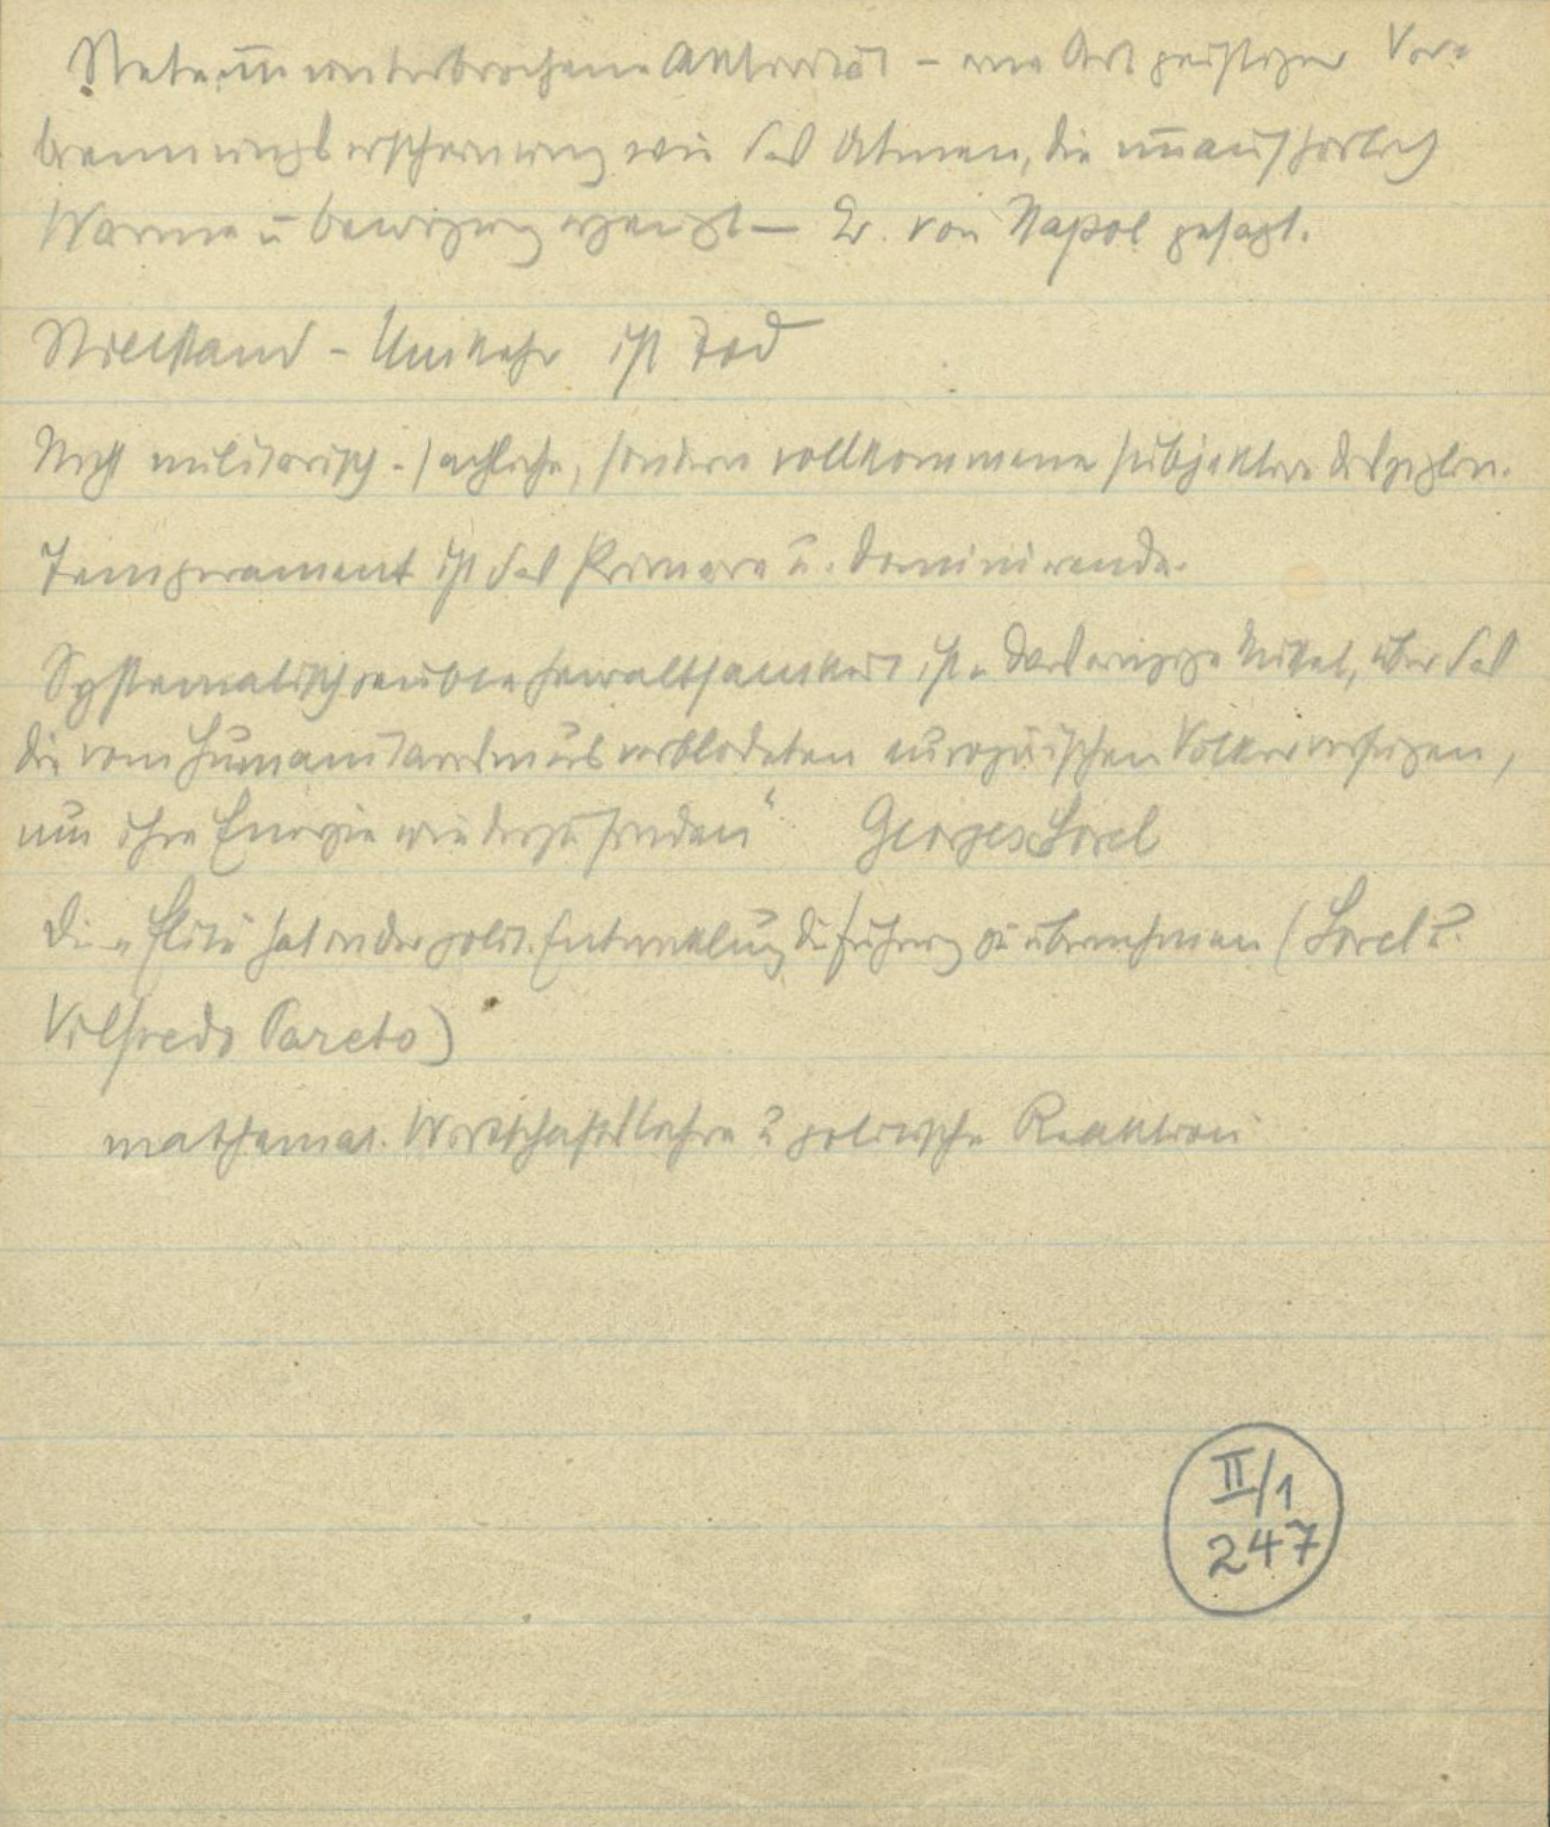 Stete ununterbrochene Aktivität – eine Art geistiger Ver=
brennungserscheinung wie das Atmen, die unaufhörlich
Wärme u Bewegung erzeugt – Er. von Napol gesagt.
Stillstand – Umkehr ist Tod
Nicht militärisch-sachliche, sondern vollkommene subjektive Disziplin.
Temperament ist das Primäre u. Dominirende.
Systematisch geübte Gewaltsamkeit ist „Das einzige Mittel, über das
die vom Humanitarismus verblödeten europäischen Völker verfügen,
um ihre Energie wiederzufinden“ Georges Sorel
Die „Elite“ hat in der polit. Entwicklung die Führung zu übernehmen (Sorel u.
Vilfredo Pareto)
mathemat. Wirtschaftslehre u politische Reaktion
II/1
247